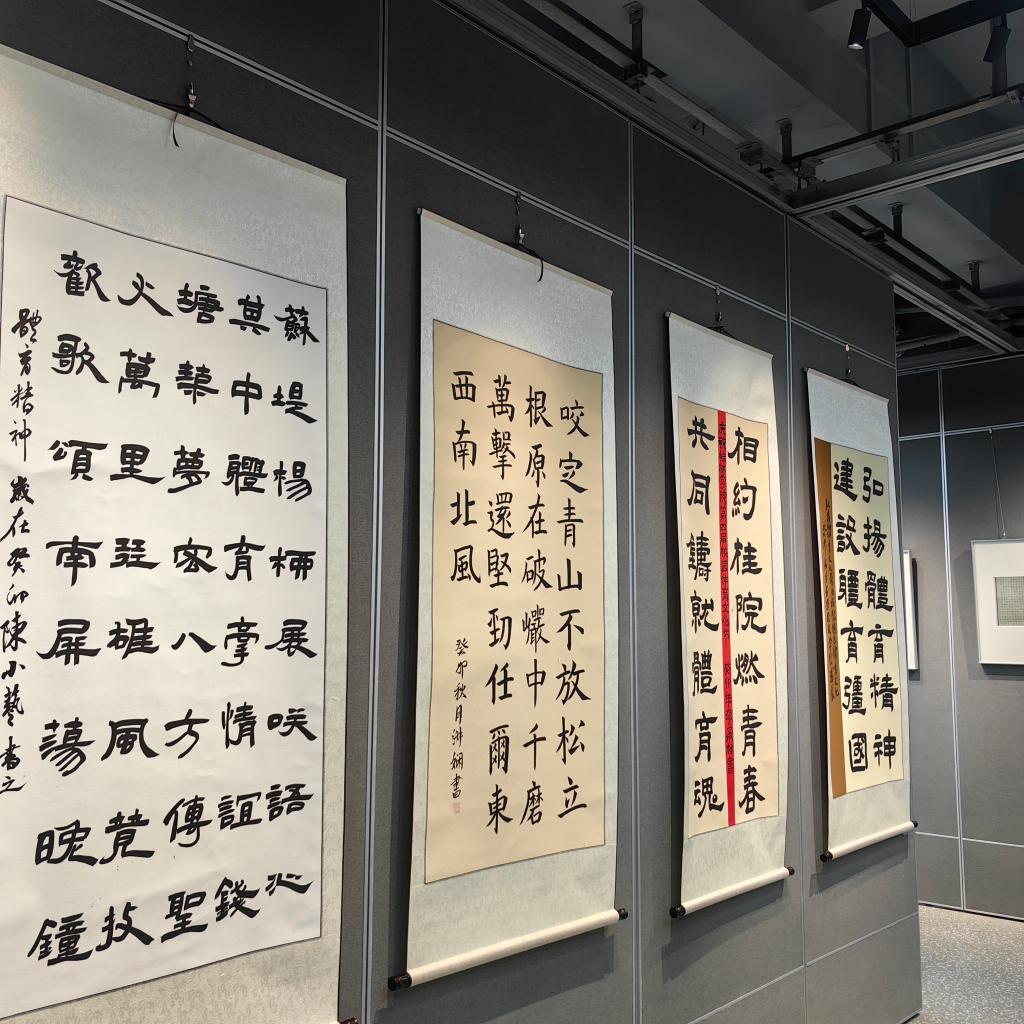 蘇堤楊柳展咲語沁
其中體育牽情誼錢
塘築夢宏八方傳聖
火萬里雄風竟技
歡歌頌南屏蕩晚鐘
體育精神 歲在癸卯陳小藝書之
咬定青山不放松立
根原在破巖中千磨
萬擊還堅勁任爾東
西南北風
癸卯秋月書
相約桂院燃青春
共同鑄就體育魂
弘揚體育精神
建設體育彊國